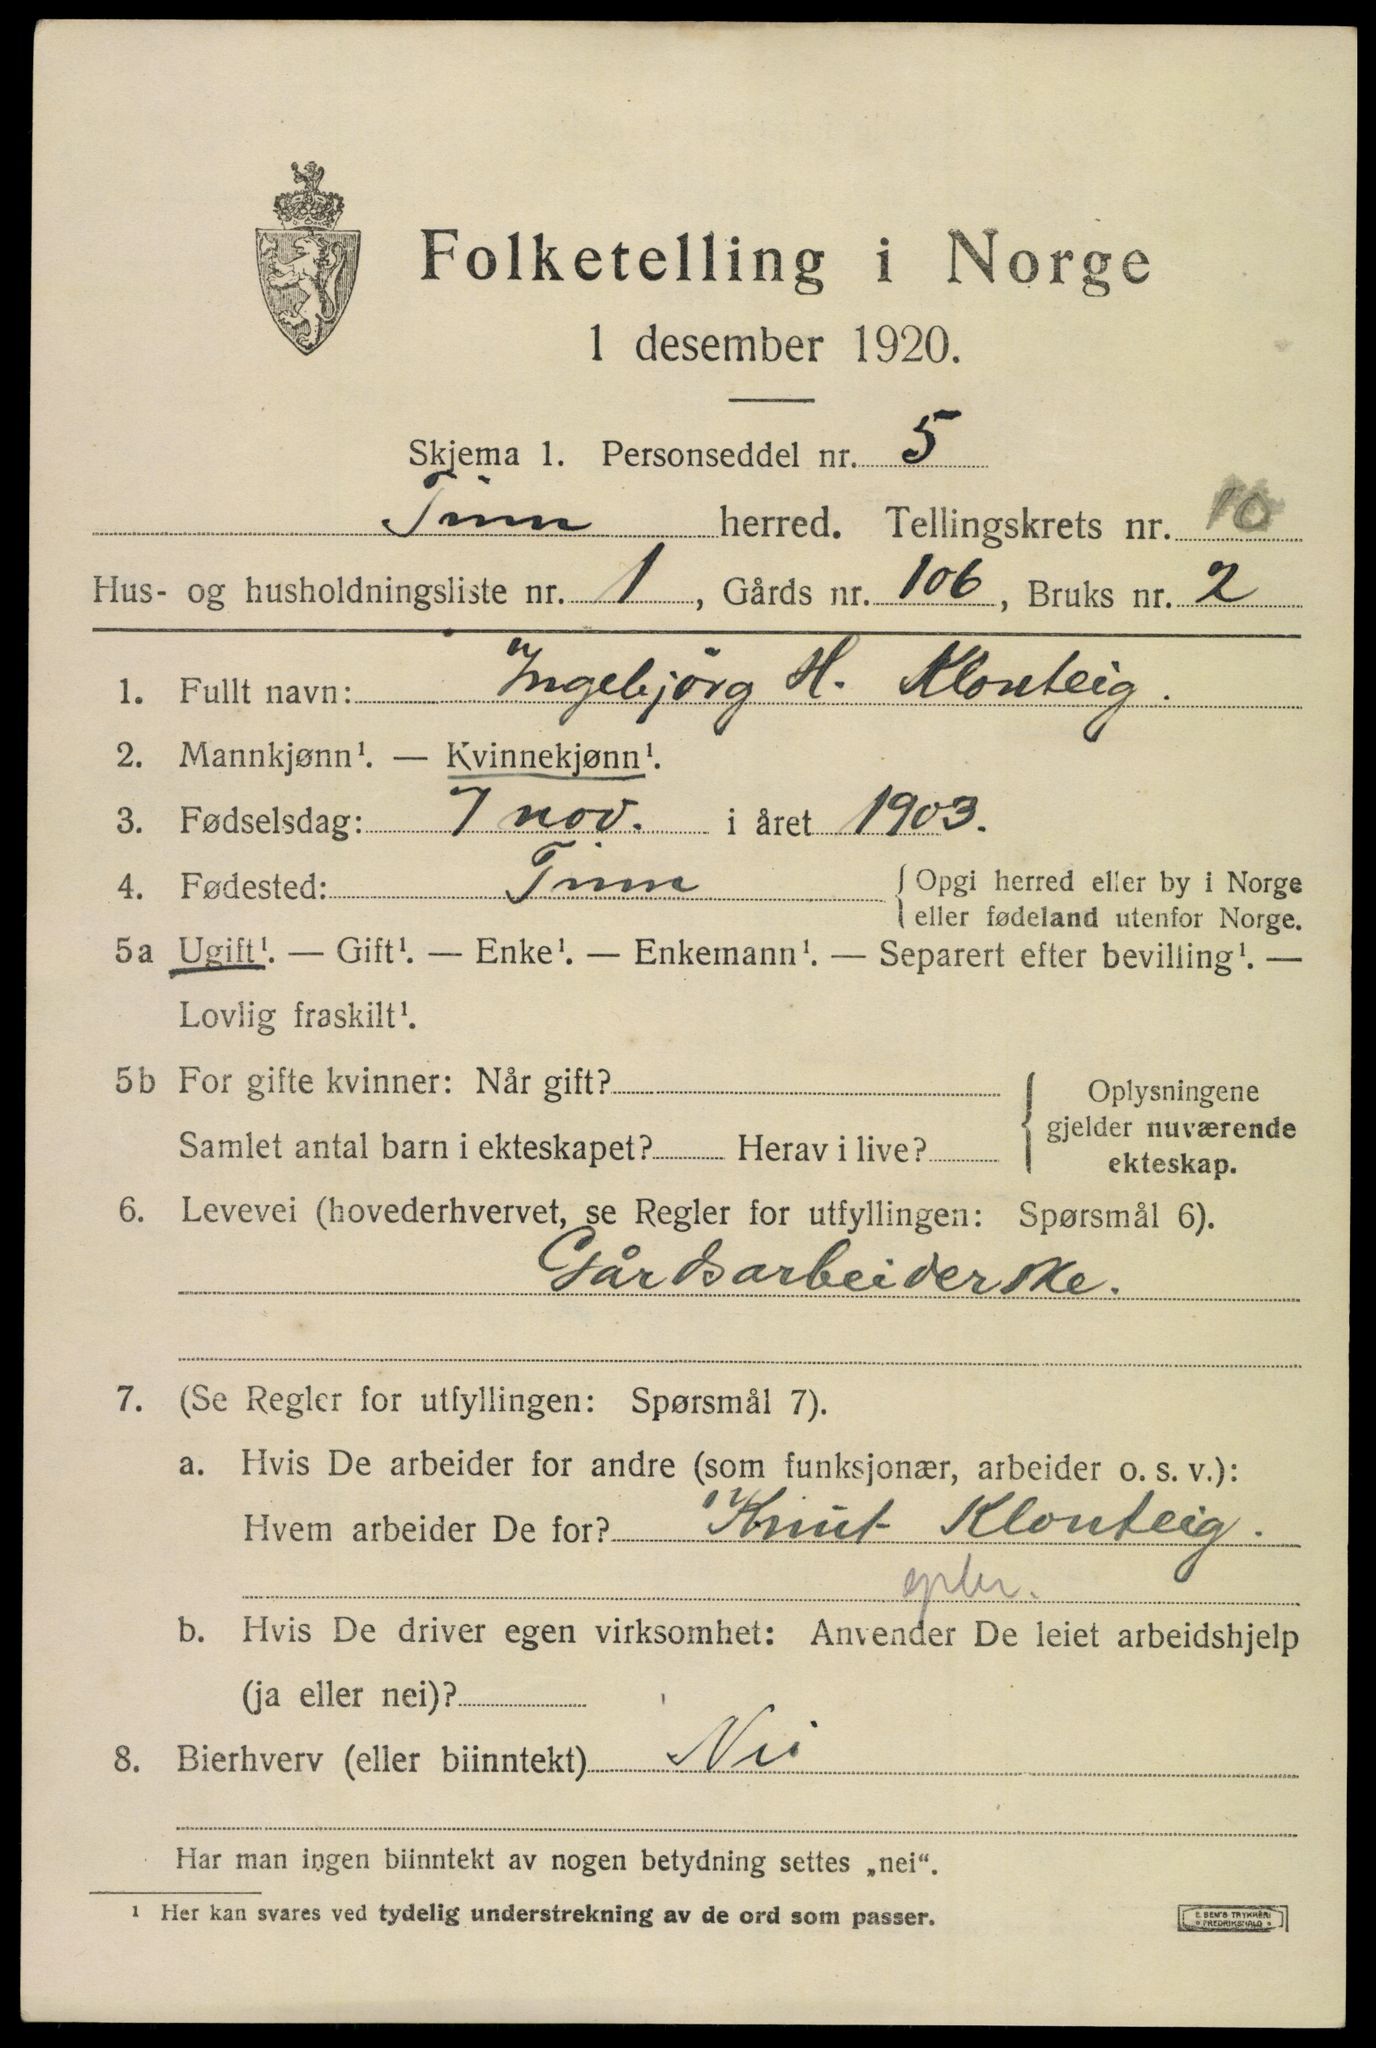 Folketelling i Norge
1 desember 1920.
Skjema 1. Personseddel nr. 5
Tinn herred. Tellingskrets nr. 10
Hus- og husholdningsliste nr. 1, Gårds nr. 106, Bruks nr. 2
1. Fullt navn: Ingebjörg H. Klonteig.
2. Mannkjønn¹. — Kvinnekjønn¹.
3. Fødselsdag: 7 nov. i året 1903.
4. Fødested: Tinn { Opgi herred eller by i Norge
eller fødeland utenfor Norge.
5a Ugift¹. — Gift¹. — Enke¹. — Enkemann¹. — Separert efter bevilling¹. —
Lovlig fraskilt¹.
5b For gifte kvinner: Når gift?
Samlet antal barn i ekteskapet? Herav i live?
{ Oplysningene
gjelder nuværende
ekteskap.
6. Levevei (hovederhvervet, se Regler for utfyllingen: Spørsmål 6).
Gårdsarbeiderske.
7. (Se Regler for utfyllingen: Spørsmål 7).
a. Hvis De arbeider for andre (som funksjonær, arbeider o. s. v.):
Hvem arbeider De for? Knut Klonteig.
b. Hvis De driver egen virksomhet: Anvender De leiet arbeidshjelp
(ja eller nei)?
8. Bierhverv (eller biinntekt) Nei
Har man ingen biinntekt av nogen betydning settes „nei“.
¹ Her kan svares ved tydelig understrekning av de ord som passer.
E. SEM'S TRYKKERI
FREDRIKSHALD